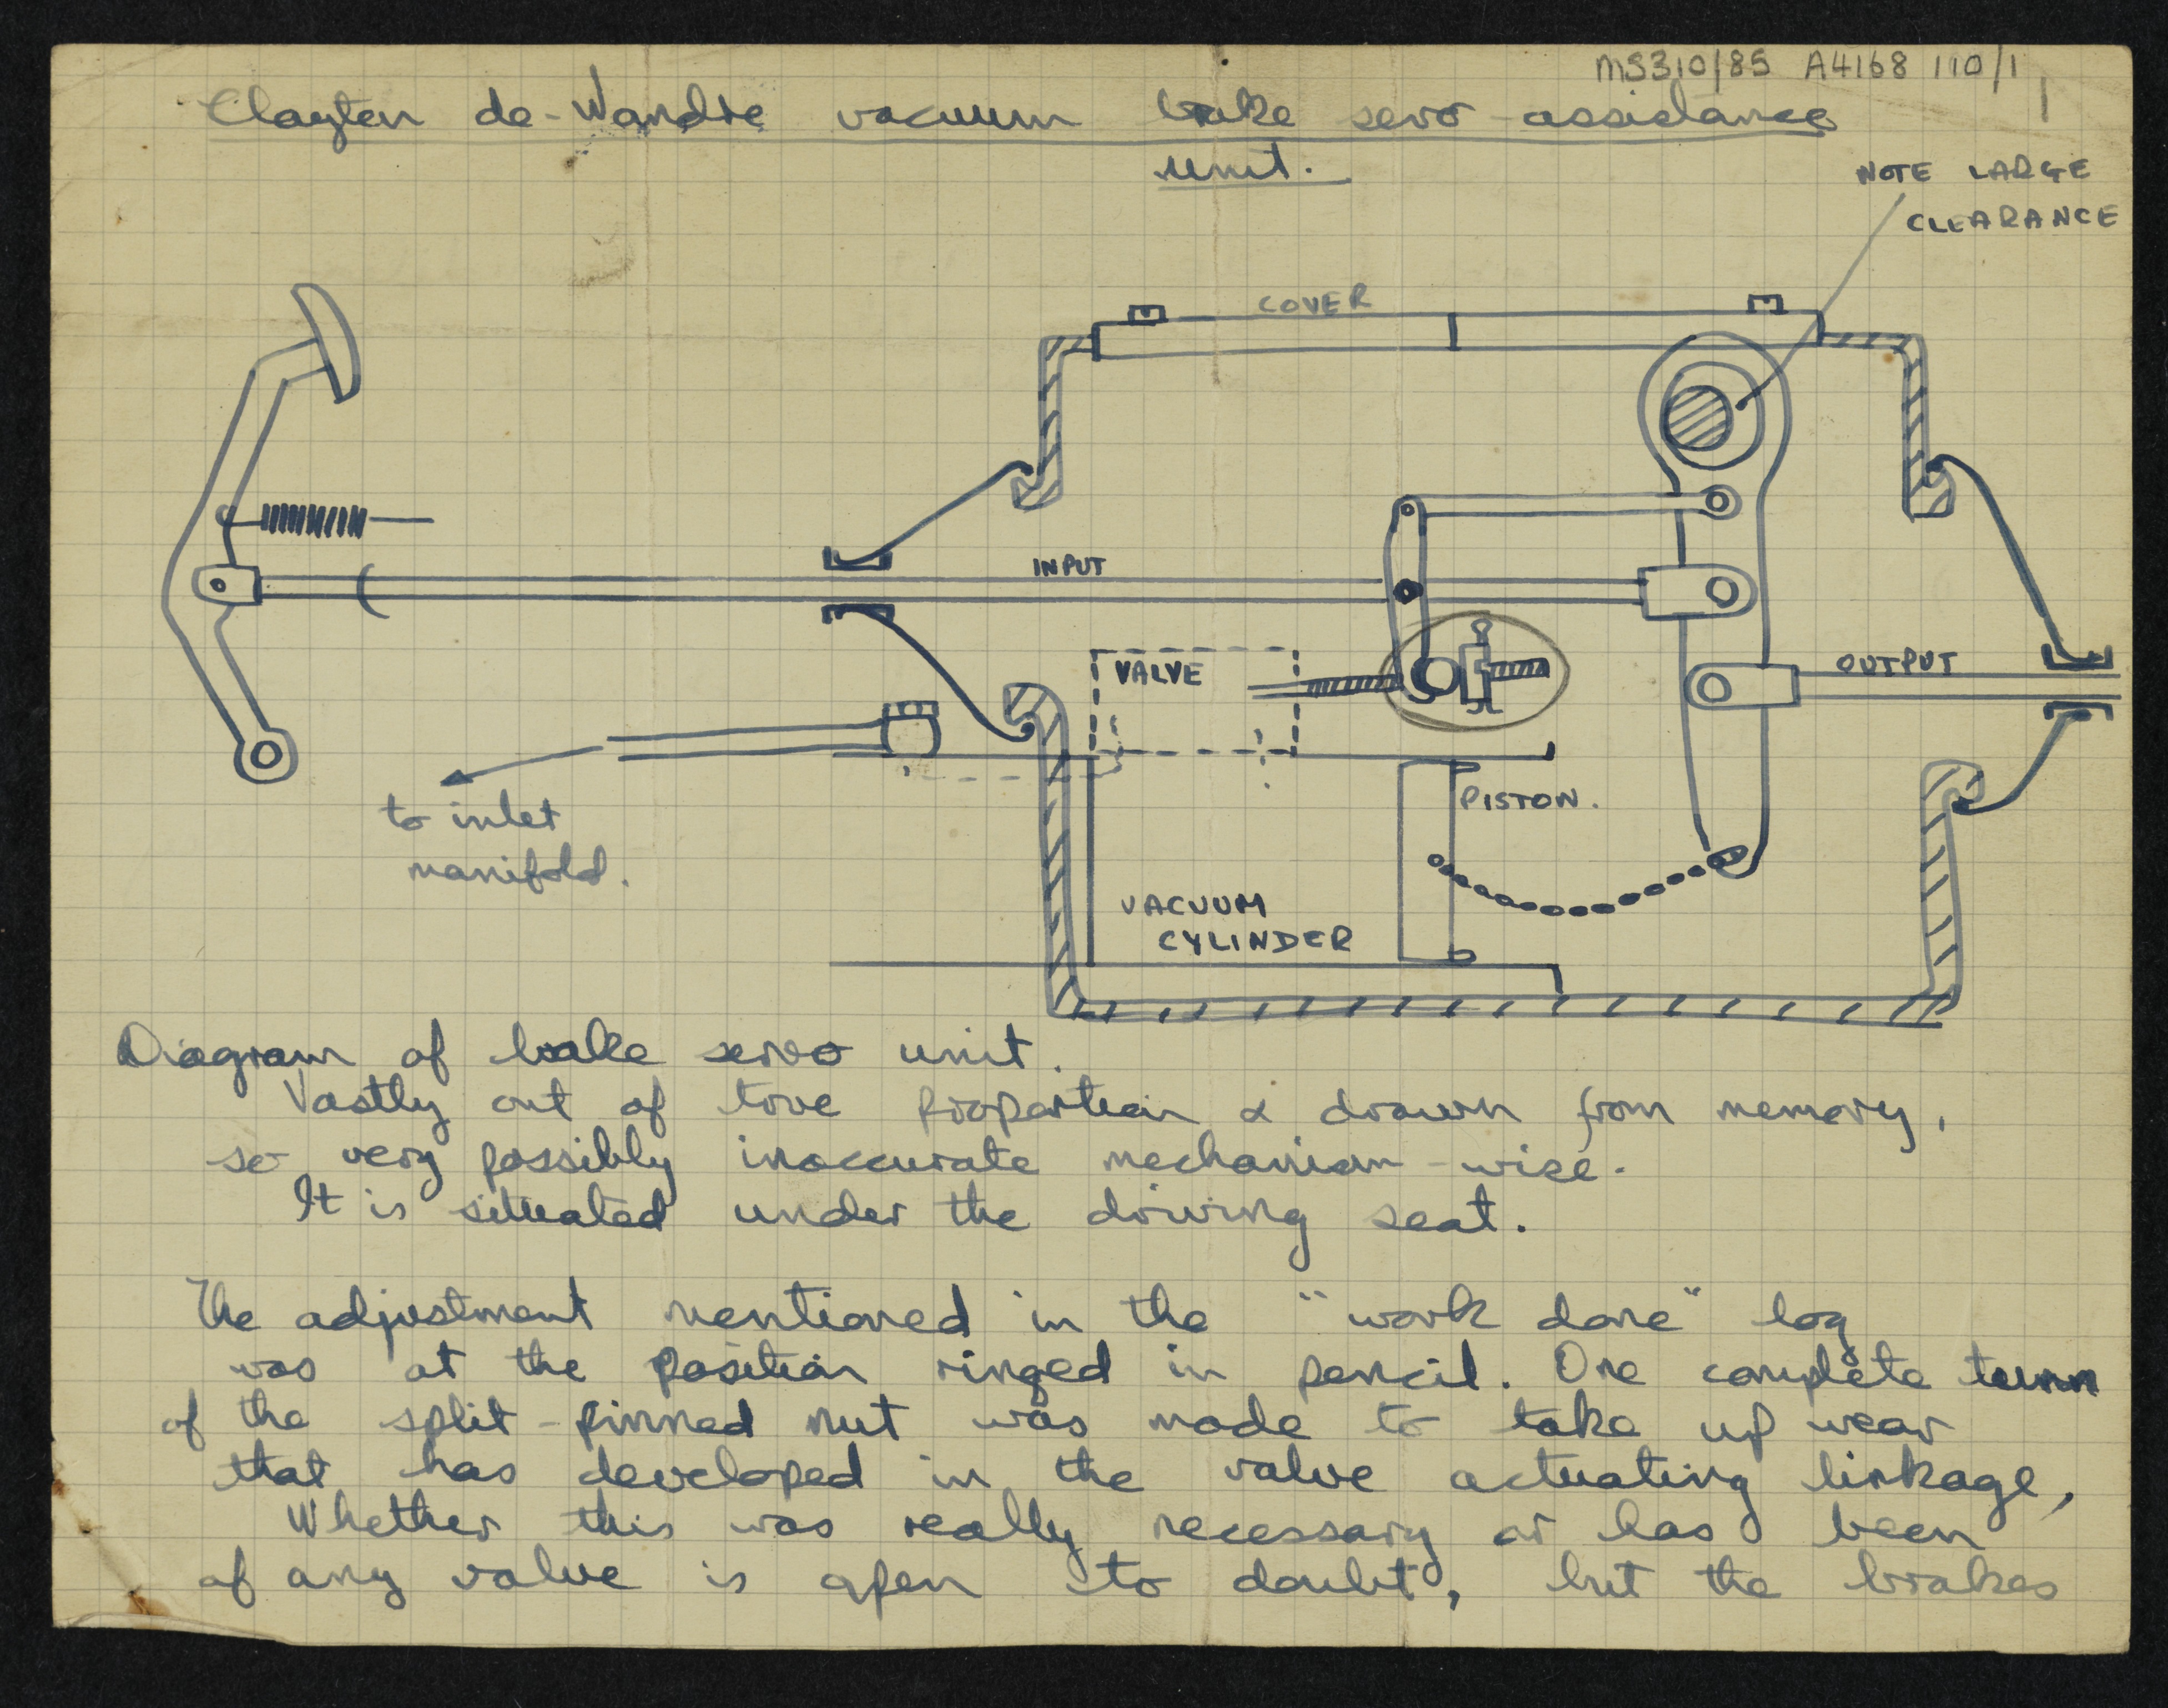 MS310/85 A4168 110/1
1
Clayton de-Wandre vacuum brake servo-assistance
unit.
NOTE LARGE
CLEARANCE
COVER
INPUT
VALVE
OUTPUT
to inlet
manifold.
PISTON.
VACUUM
CYLINDER
Diagram of brake servo unit.
Vastly out of true proportion & drawn from memory,
so very possibly inaccurate mechanism-wise.
It is situated under the driving seat.
The adjustment mentioned in the "work done" log
was at the position ringed in pencil. One complete turn
of the split-pinned nut was made to take up wear
that has developed in the valve actuating linkage,
Whether this was really necessary or has been
of any value is open to doubt, but the brakes